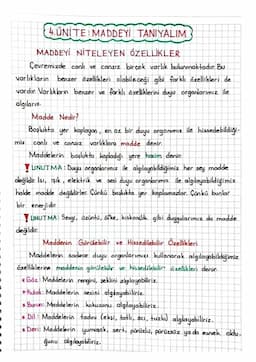 4.ÜNİTE: MADDEYİ TANIYALIM
MADDEYİ NİTELEYEN ÖZELLİKLER
Çevremizde canlı ve cansız birçok varlık bulunmaktadır. Bu
varlıkların benzer özellikleri olabileceği gibi farklı özellikleri de
vardır. Varlıkların benzer ve farklı özelliklerini duyu organlarımız ile
algılarız.
Madde Nedir?
Boşlukta yer kaplayan, en az bir duyu organımız ile hissedebildiği-
miz canlı ve cansız varlıklara madde denir.
Maddelerin boşlukta kapladığı yere hacim denir.
UNUTMA: Duyu organlarımız ile algılayabildiğimiz her şey madde
değildir. Isı, ışık, elektrik ve sesi duyu organlarımız ile algılayabildiğimiz
halde madde değildirler. Çünkü boşlukta yer kaplamazlar. Çünkü bunlar
bir enerjidir.
UNUTMA: Sevgi, üzüntü, öfke, kıskançlık gibi duygularımız da madde
değildir.
Maddenin Görülebilir ve Hissedilebilir Özellikleri
Maddelerin sadece duyu organlarımızı kullanarak algılayabildiğimiz
özelliklerine maddenin görülebilir ve hissedilebilir özellikleri denir.
Göz: Maddelerin rengini, şeklini algılayabiliriz.
Kulak: Maddelerin sesini algılayabiliriz.
Burun: Maddelerin kokusunu algılayabiliriz.
Dil: Maddelerin tadını (ekşi, tatlı, acı, tuzlu) algılayabiliriz.
Deri: Maddelerin yumuşak, sert, pürüzlü, pürüzsüz ya da esnek oldu-
ğunu algılayabiliriz.